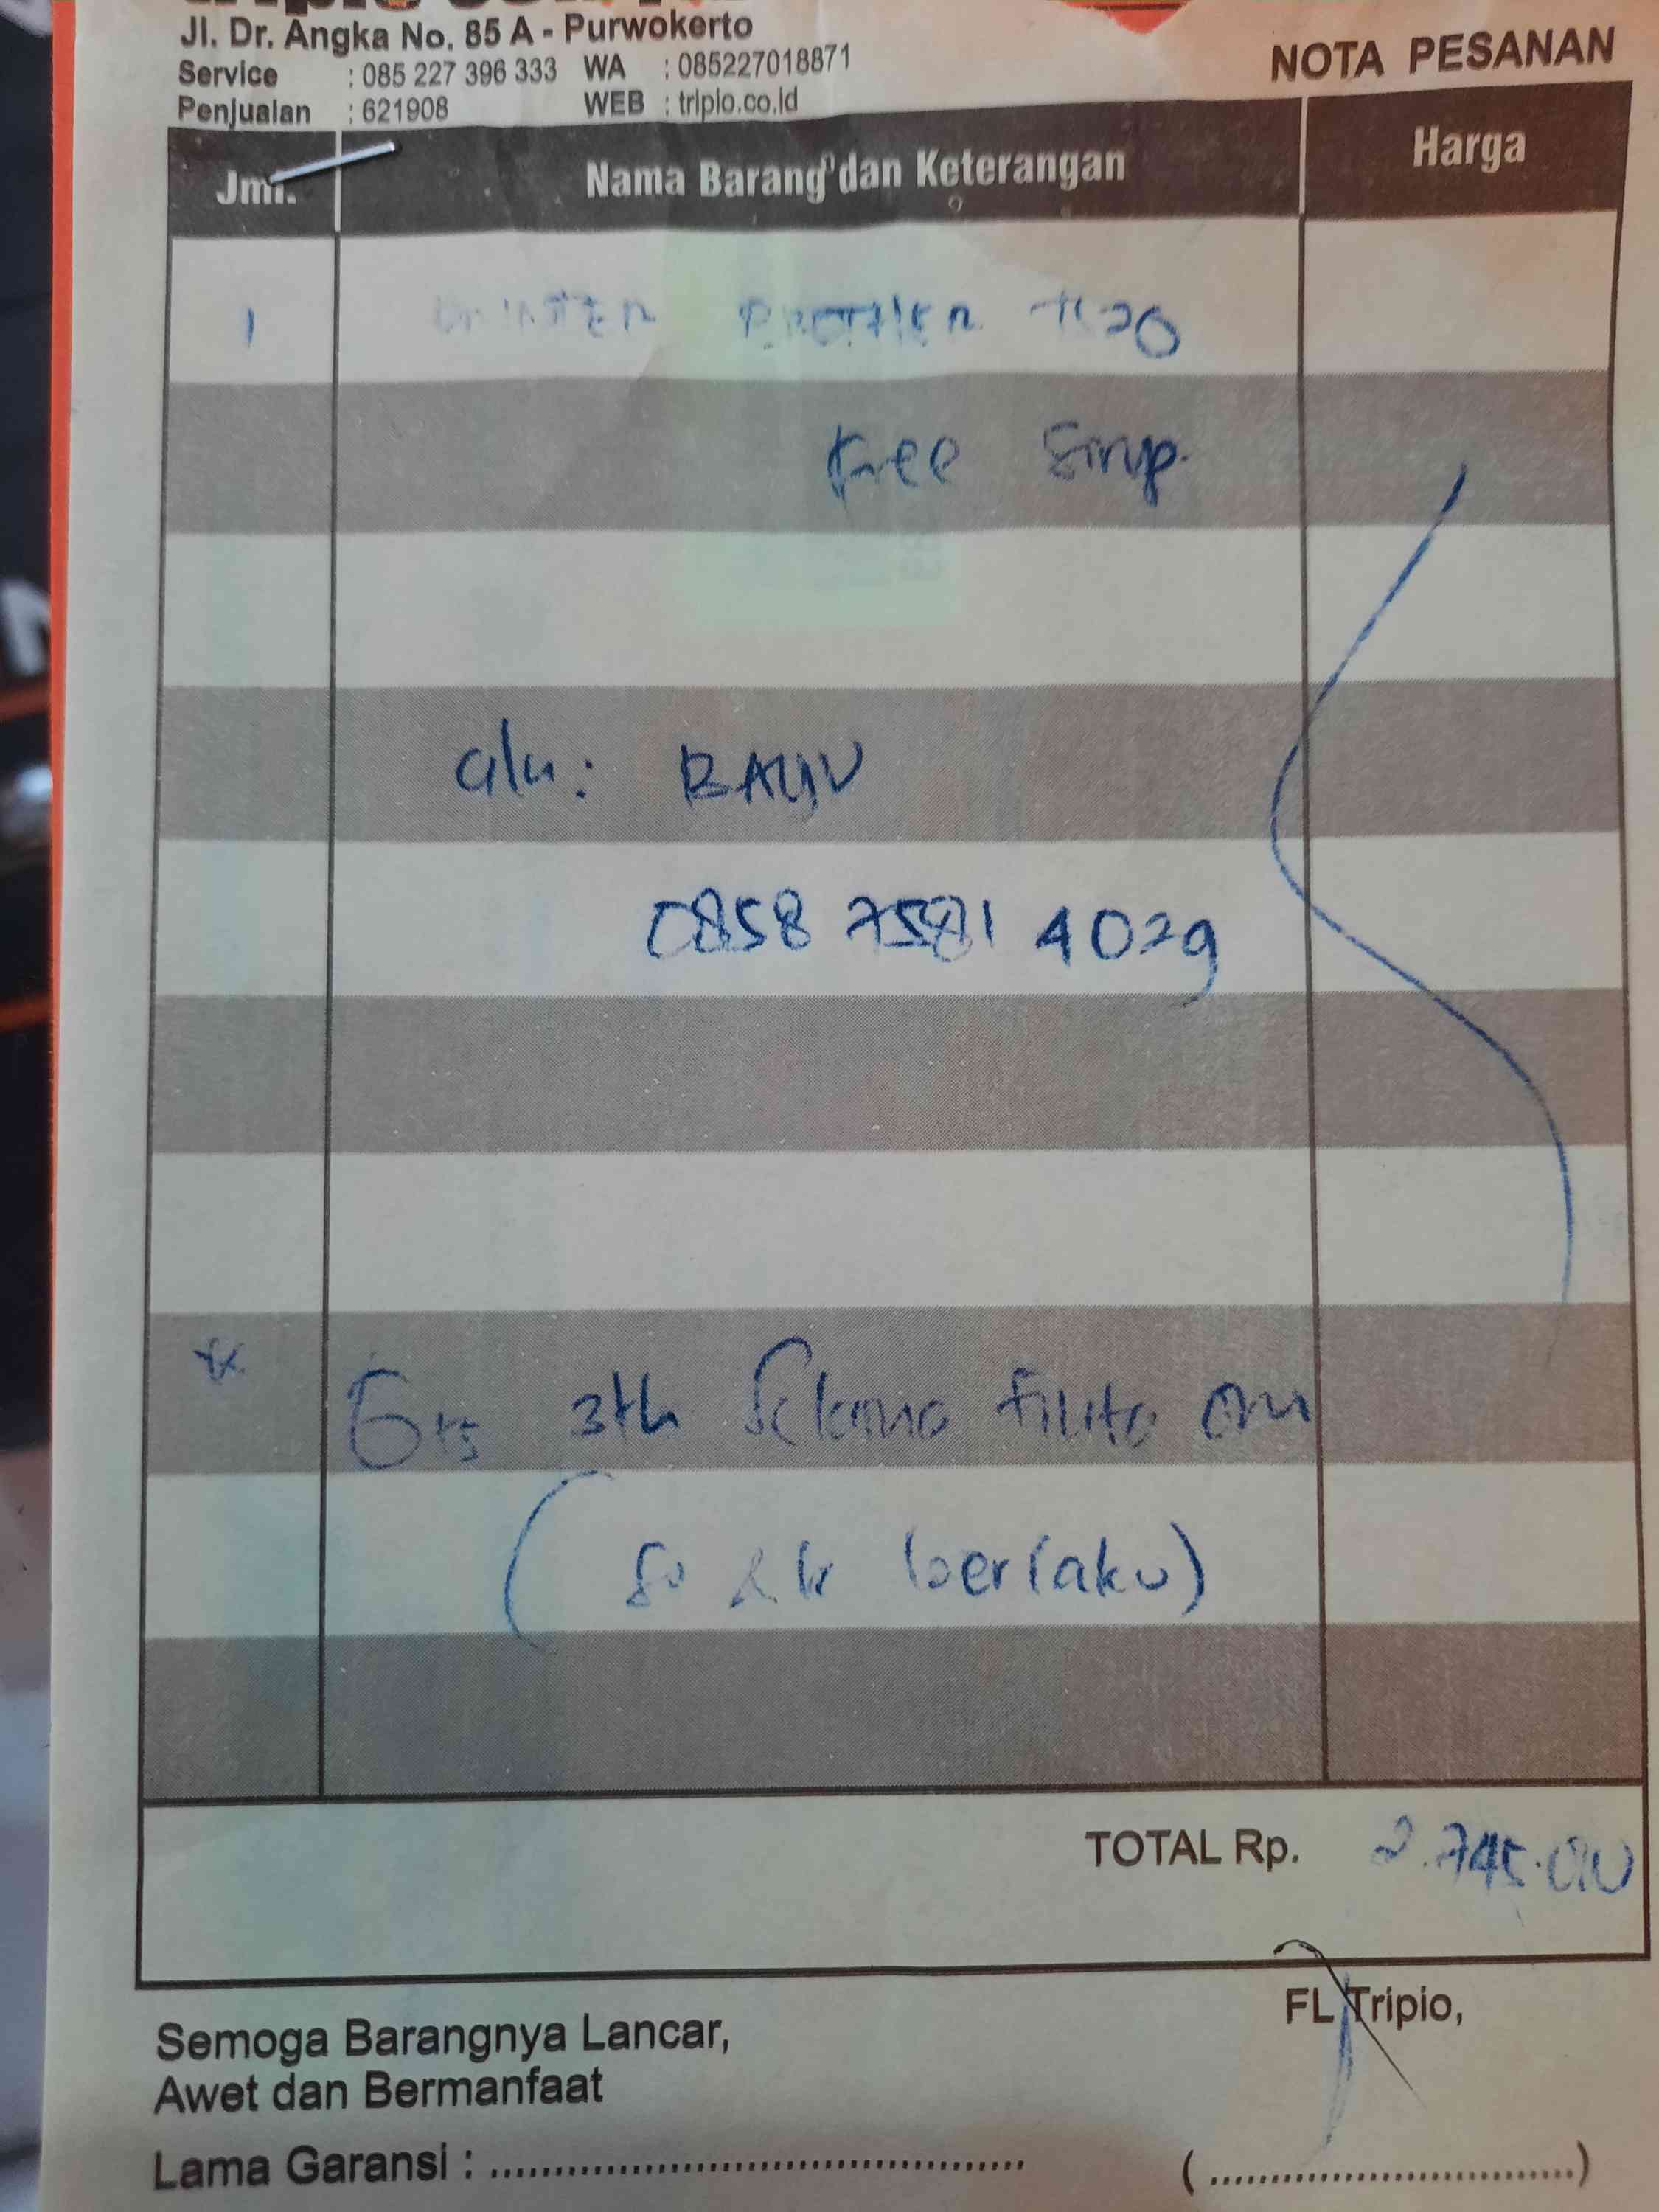 Jl. Dr. Angka No. 85 A - Purwokerto
NOTA PESANAN
Service : 085 227 396 333 WA : 085227018871
Penjualan : 621908 WEB : tripio.co.id
Jml. Nama Barang dan Keterangan Harga
1 PRINTER BROTHER T520
Free
a/n: BAYU
0858 7581 4029
* Grs 3th Selama tinta ori
( S & k berlaku)
TOTAL Rp. 2.745.000
FL Tripio,
Semoga Barangnya Lancar,
Awet dan Bermanfaat
Lama Garansi : ........................................ (..............................)